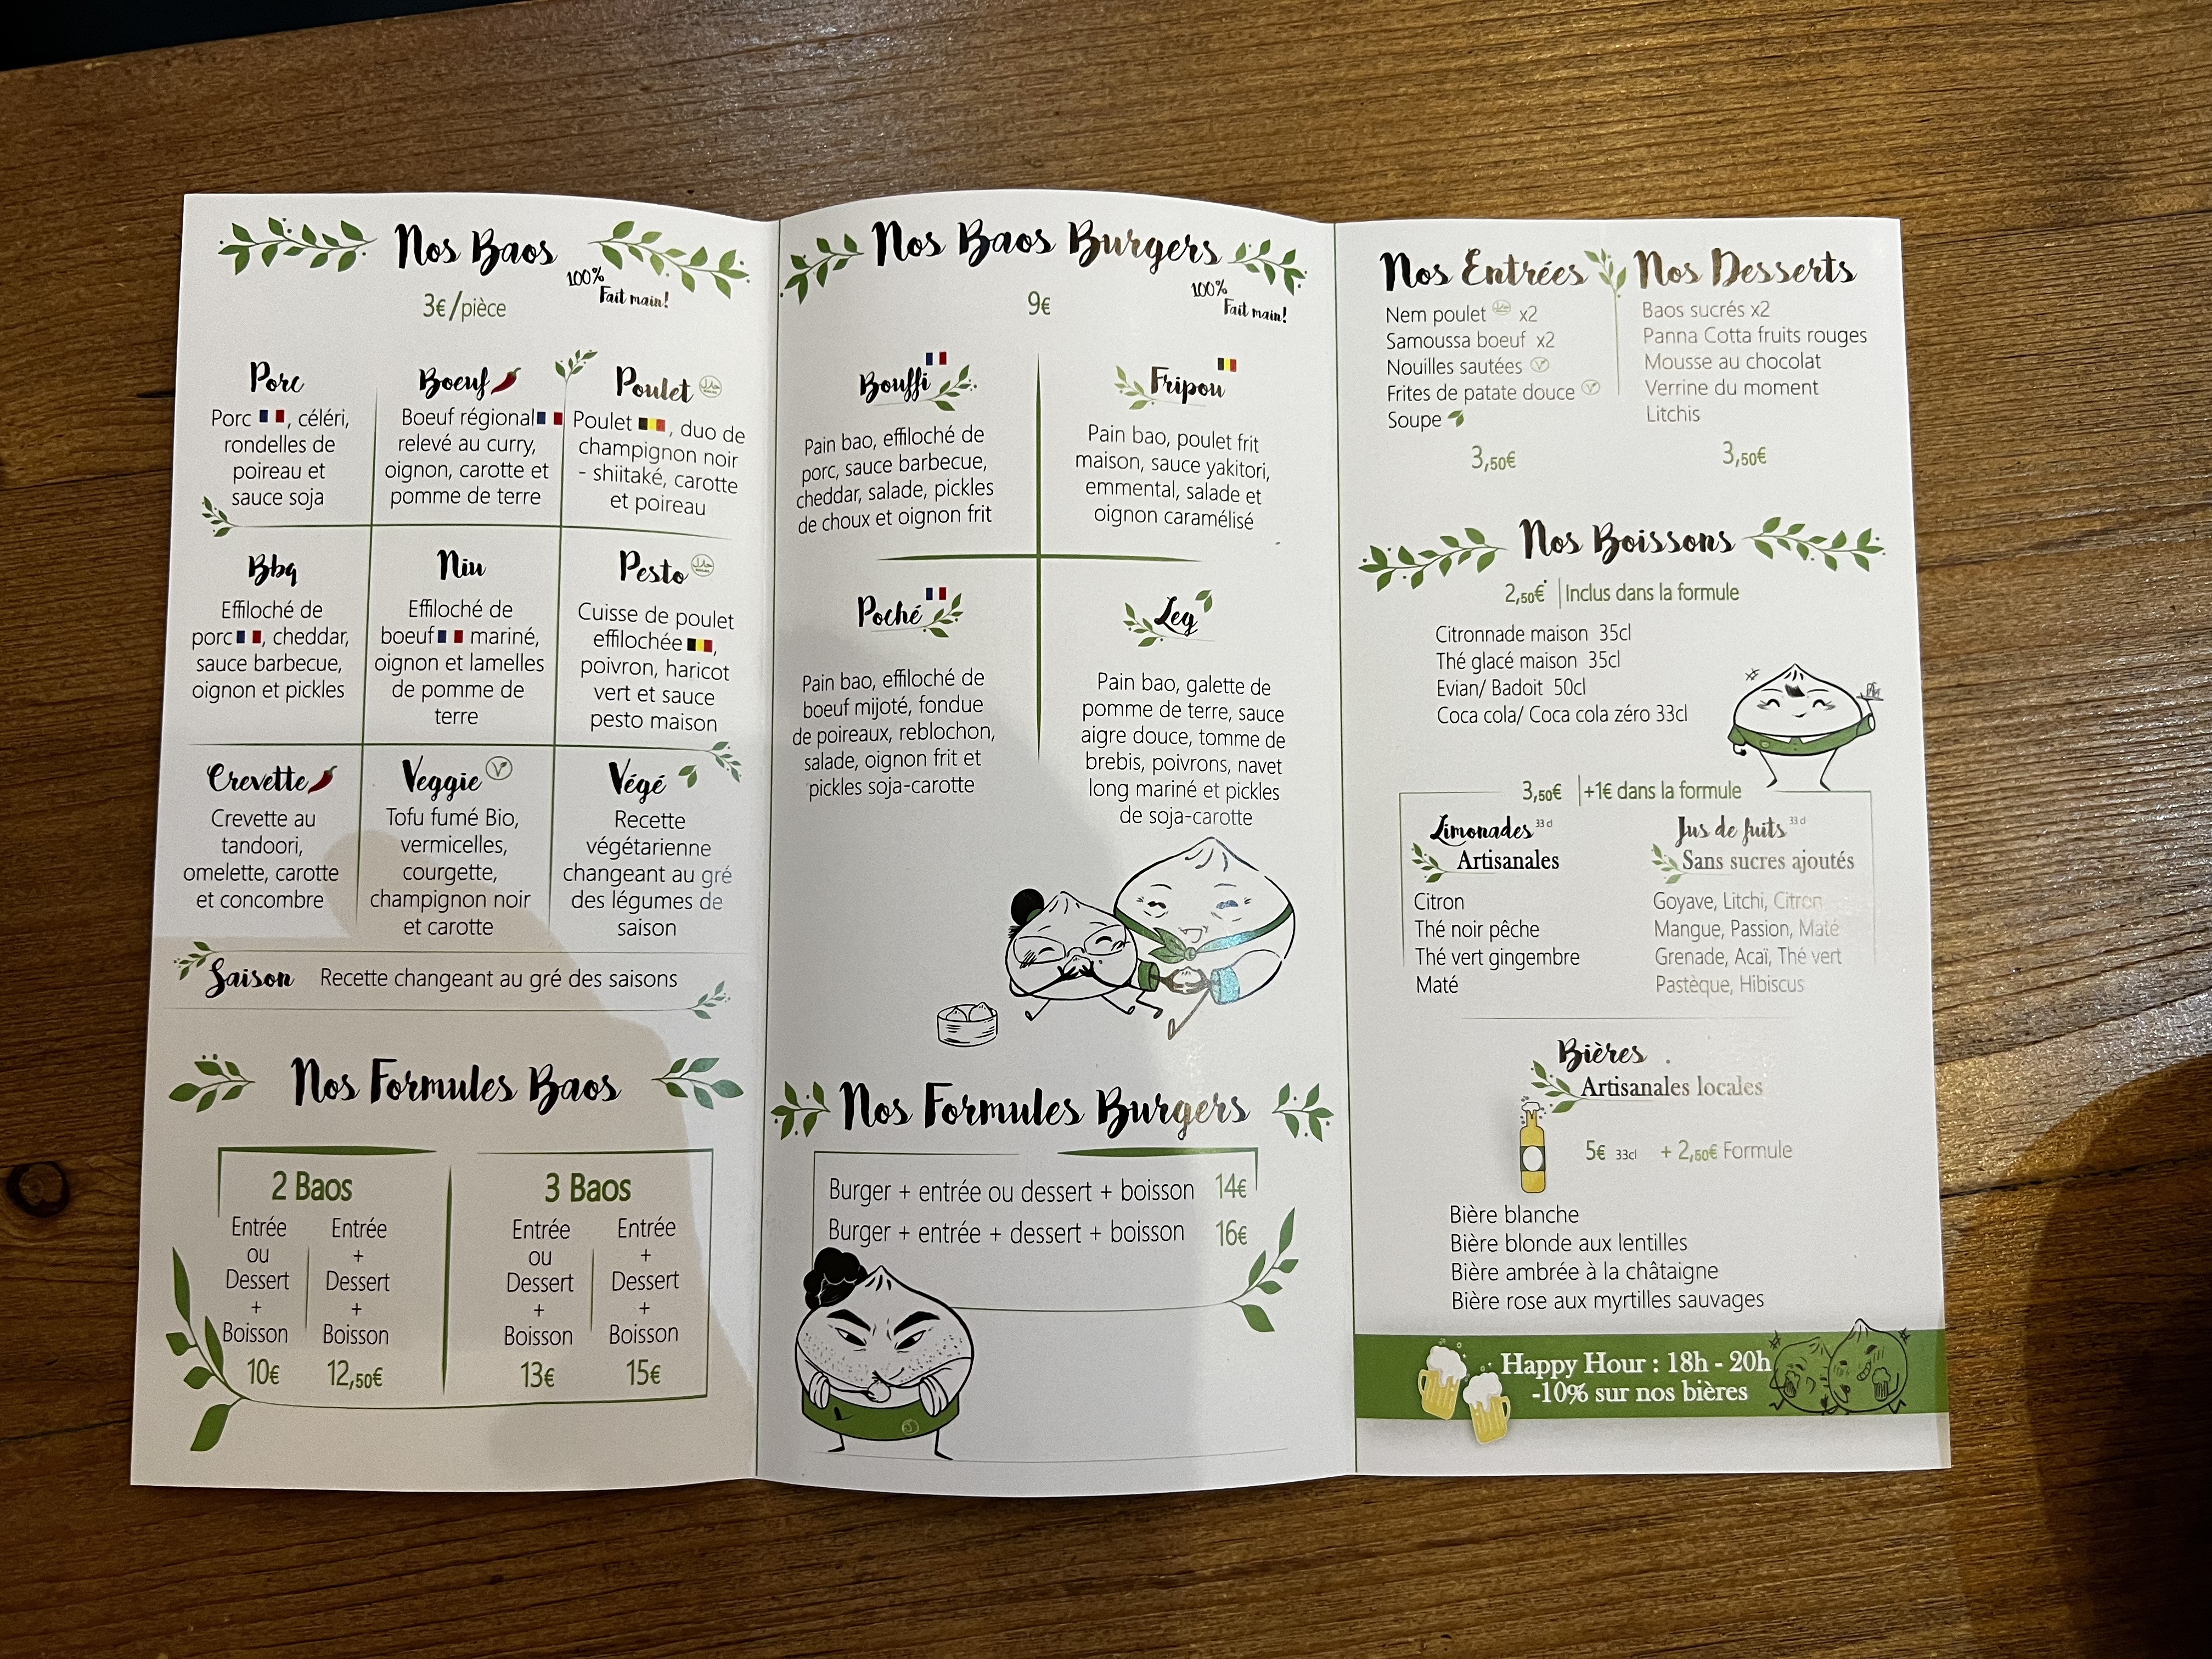 Nos Baos
100%
Fait main!
3€/pièce
Porc
Porc , céléri,
rondelles de
poireau et
sauce soja
Boeuf
Boeuf régional
relevé au curry,
oignon, carotte et
pomme de terre
Poulet
Poulet , duo de
champignon noir
- shiitaké, carotte
et poireau
Bbq
Effiloché de
porc , cheddar,
sauce barbecue,
oignon et pickles
Niu
Effiloché de
boeuf mariné,
oignon et lamelles
de pomme de
terre
Pesto
Cuisse de poulet
effilochée ,
poivron, haricot
vert et sauce
pesto maison
Crevette
Crevette au
tandoori,
omelette, carotte
et concombre
Veggie
Tofu fumé Bio,
vermicelles,
courgette,
champignon noir
et carotte
Végé
Recette
végétarienne
changeant au gré
des légumes de
saison
Saison Recette changeant au gré des saisons
Nos Formules Baos
2 Baos
Entrée
ou
Dessert
+
Boisson
10€
Entrée
+
Dessert
+
Boisson
12,50€
3 Baos
Entrée
ou
Dessert
+
Boisson
13€
Entrée
+
Dessert
+
Boisson
15€
Nos Baos Burgers
100%
Fait main!
9€
Bouffi
Pain bao, effiloché de
porc, sauce barbecue,
cheddar, salade, pickles
de choux et oignon frit
Fripou
Pain bao, poulet frit
maison, sauce yakitori,
emmental, salade et
oignon caramélisé
Poché
Pain bao, effiloché de
boeuf mijoté, fondue
de poireaux, reblochon,
salade, oignon frit et
pickles soja-carotte
Leg
Pain bao, galette de
pomme de terre, sauce
aigre douce, tomme de
brebis, poivrons, navet
long mariné et pickles
de soja-carotte
Nos Formules Burgers
Burger + entrée ou dessert + boisson 14€
Burger + entrée + dessert + boisson 16€
Nos Entrées
Nem poulet x2
Samoussa boeuf x2
Nouilles sautées
Frites de patate douce
Soupe
3,50€
Nos Desserts
Baos sucrés x2
Panna Cotta fruits rouges
Mousse au chocolat
Verrine du moment
Litchis
3,50€
Nos Boissons
2,50€ | Inclus dans la formule
Citronnade maison 35cl
Thé glacé maison 35cl
Evian/ Badoit 50cl
Coca cola/ Coca cola zéro 33cl
3,50€ | +1€ dans la formule
Limonades 33cl
Artisanales
Citron
Thé noir pêche
Thé vert gingembre
Maté
Jus de fuits 33cl
Sans sucres ajoutés
Goyave, Litchi, Citron
Mangue, Passion, Maté
Grenade, Acaï, Thé vert
Pastèque, Hibiscus
Bières
Artisanales locales
5€ 33cl + 2,50€ Formule
Bière blanche
Bière blonde aux lentilles
Bière ambrée à la châtaigne
Bière rose aux myrtilles sauvages
Happy Hour : 18h - 20h
-10% sur nos bières